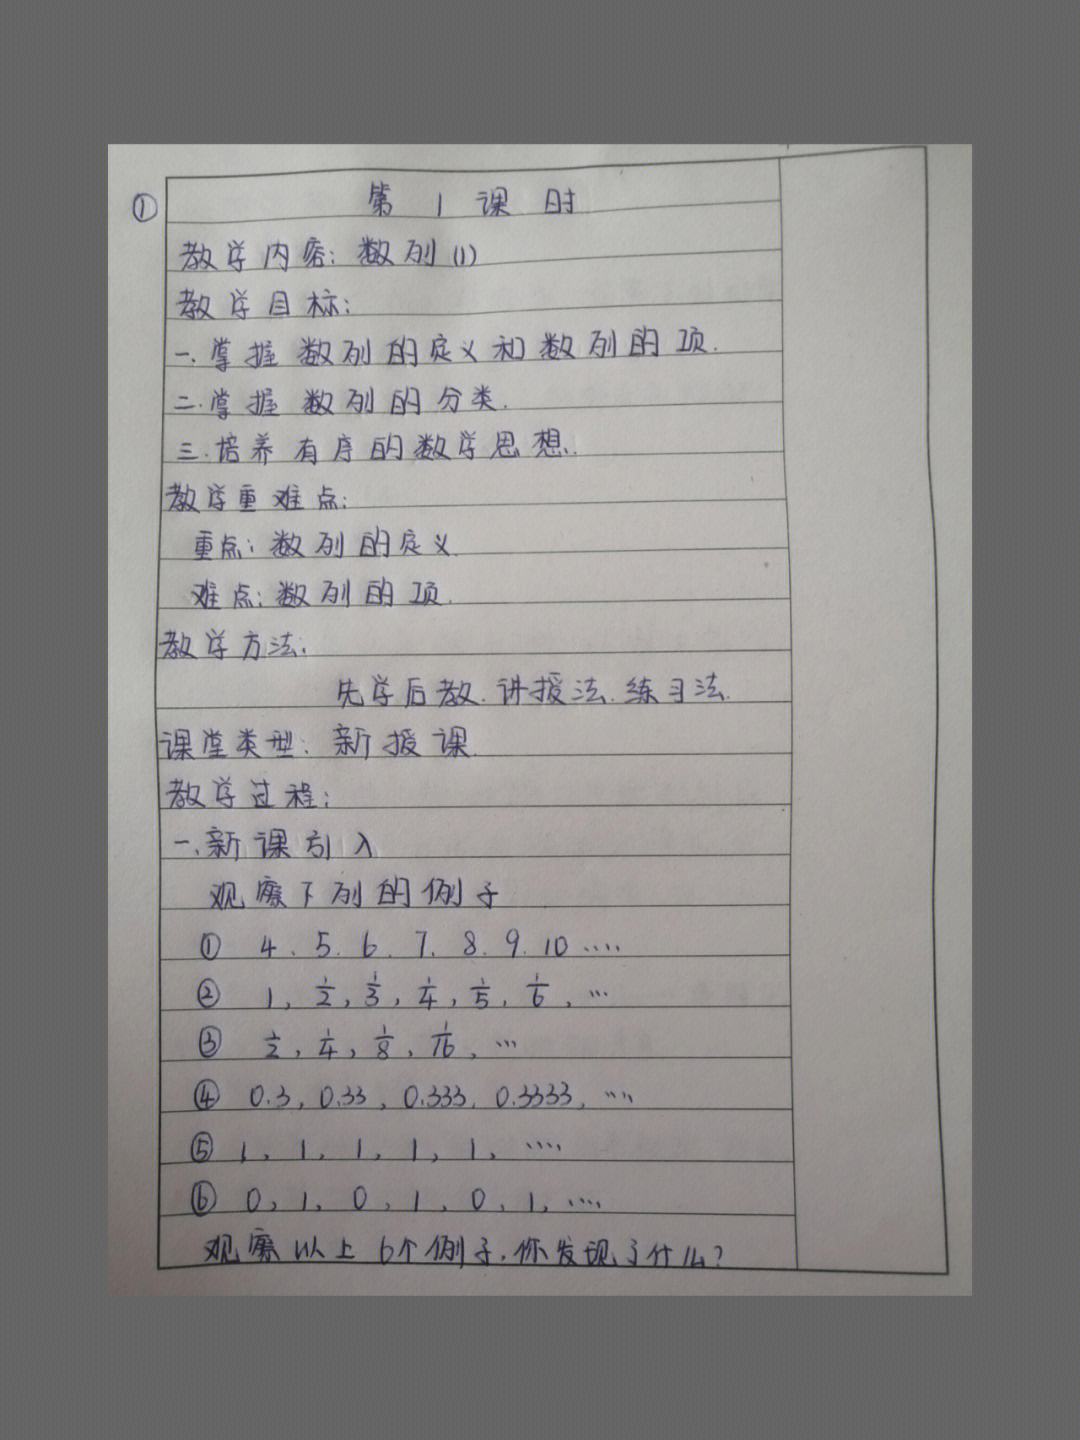 ① 第 1 课 时
教学内容：数列(1)
教学目标：
一.掌握数列的定义和数列的项.
二.掌握数列的分类.
三.培养有序的数学思想.
教学重难点：
重点：数列的定义
难点：数列的项.
教学方法：
先学后教.讲授法.练习法.
课堂类型：新授课.
教学过程：
一.新课引入
观察下列的例子
① 4、5、6、7、8、9、10 ……
② 1, 1/2, 1/3, 1/4, 1/5, 1/6, …
③ 1/2, 1/4, 1/8, 1/16, …
④ 0.3, 0.33, 0.333, 0.3333, ……
⑤ 1, 1, 1, 1, 1, ……
⑥ 0, 1, 0, 1, 0, 1, ……
观察以上6个例子,你发现了什么?